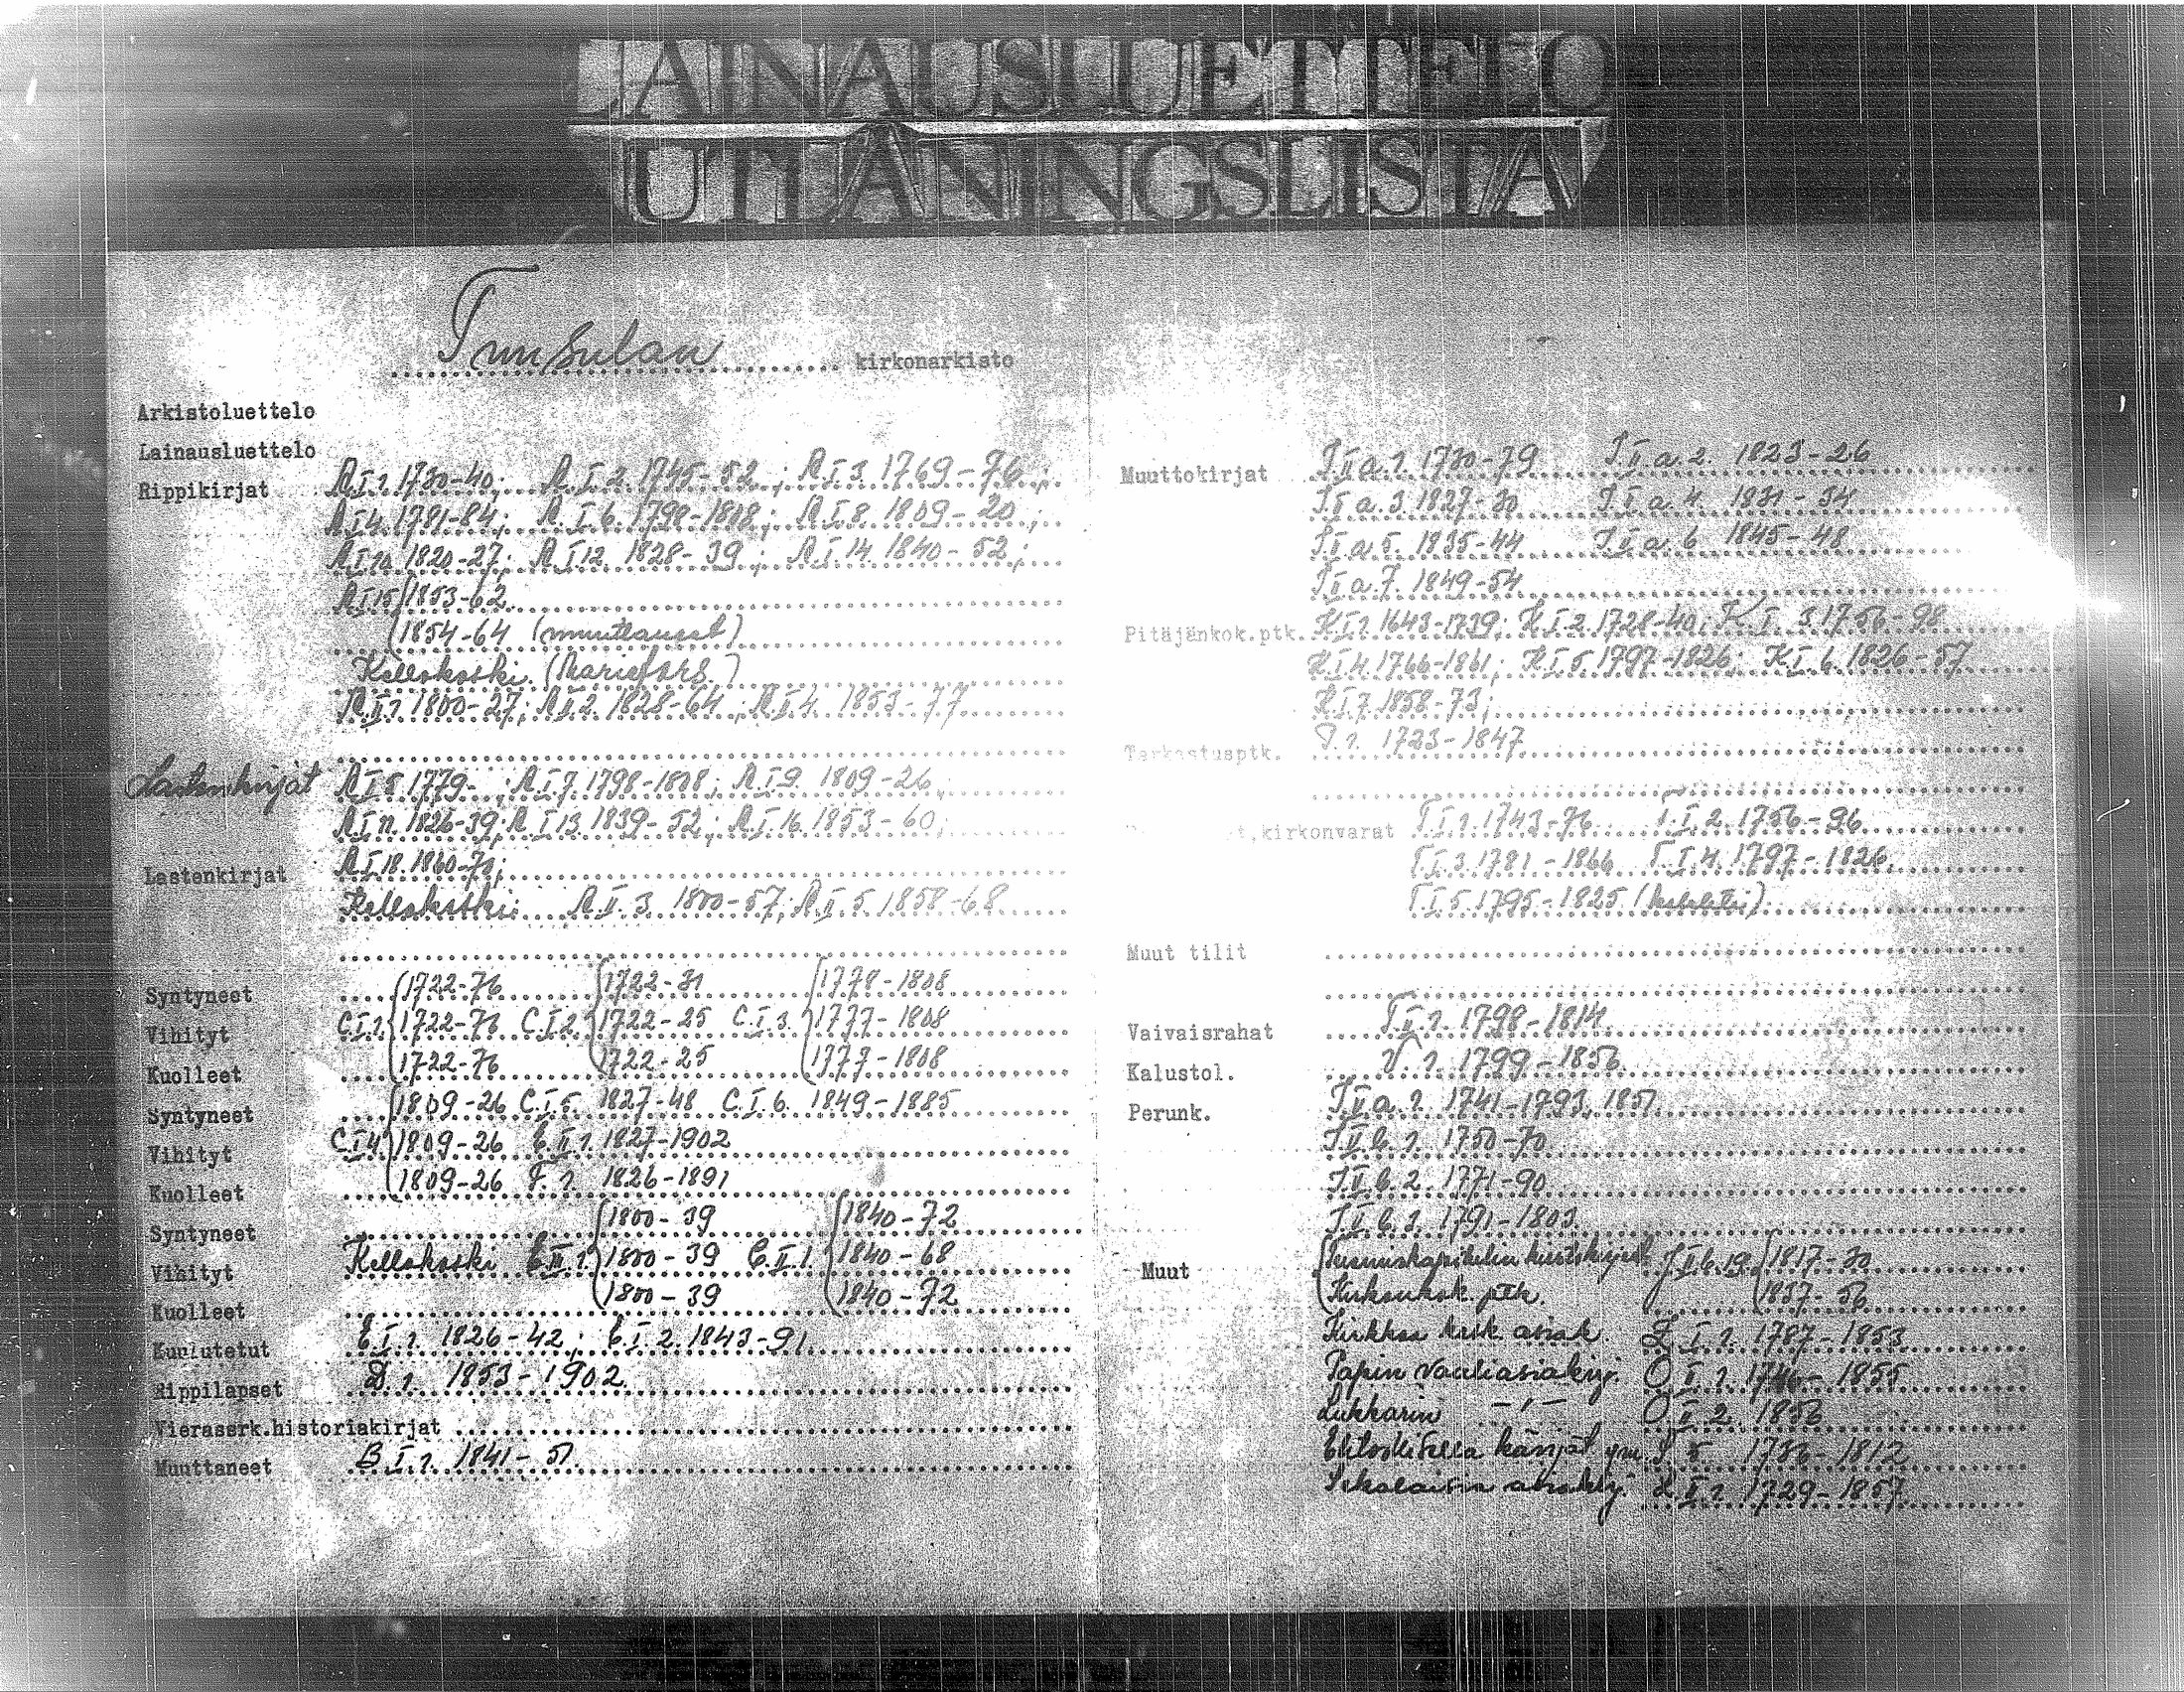 LAINAUSLUETTELO
UTLÅNINGSLISTA
Tuusulan kirkonarkisto
Arkistoluettelo
Lainausluettelo
Rippikirjat A I 1. 1730-40; A I 2. 1745-52; A I 3. 1769-76;
A I 4. 1781-84; A I 6. 1798-1808; A I 8. 1809-20;
A I 10. 1820-27; A I 12. 1828-39; A I 14. 1840-52;
A I 15 1853-62
1854-64 (muuttaneet)
Kellokoski (Mariefors)
A II 1. 1800-27; A II 2. 1828-64; A II 4. 1853-77
Lastenkirjat A I 5. 1779- ; A I 7. 1798-1808; A I 9. 1809-26;
A I 11. 1826-39; A I 13. 1839-52; A I 16. 1853-60;
Lastenkirjat A I 18. 1860-70;
Kellokoski: A II 3. 1800-57; A II 5. 1858-68
Syntyneet 1722-76 1722-31 1778-1808
Vihityt C I 1. 1722-76 C I 2. 1722-25 C I 3. 1777-1808
Kuolleet 1722-76 1722-25 1777-1808
Syntyneet 1809-26 C I 5. 1827-48 C I 6. 1849-1885
Vihityt C I 4 1809-26 E II 1. 1827-1902
Kuolleet 1809-26 F. 1. 1826-1891
Syntyneet 1800-39 1840-72
Vihityt Kellokoski C II 1. 1800-39 C II 1840-68
Kuolleet 1800-39 1840-72
Kuulutetut E I 1. 1826-42; E I 2. 1843-91
Rippilapset D 1. 1853-1902
Vierassrk.historiakirjat
Muuttaneet B I 1. 1841-51
Muuttokirjat I II a. 1. 1730-79 I II a. 2. 1823-26
I II a. 3. 1827-30 I II a. 4. 1831-34
I II a 5. 1835-44 I II a. 6 1845-48
I II a. 7. 1849-54
Pitäjänkok.ptk. K I 1. 1643-1739; K I 2. 1728-40; K I. 3. 1756-98
K I 4. 1766-1861; K I 5. 1797-1826; K I. 6. 1826-57
K I 7. 1858-73;
Tarkastusptk. 1. 1723-1847
,kirkonvarat T I 1. 1743-76 T I. 2. 1756-96
T I. 3. 1781-1866 T I 4. 1797-1826
T I. 5. 1795-1825
Muut tilit
Vaivaisrahat T II 1. 1798-1814
Kalustol. V. 1. 1799-1856
Perunk. I II a. 1. 1741-1793, 1851
I II b. 1. 1750-70
I II b. 2. 1771-90
I II b. 3. 1791-1803
Muut Tuomiokapitulin I II b. 19. 1817-30
Kirkonkok. ptk. 1837-56
Kirkkoa kosk. asiak. 1. 1787-1853
Papin vaaliasiakirj. O II 1. 1746-1855
Lukkarin -"- O II 2. 1856
Ehtoollisella käyjät ym. 5. 1786-1812
Sekalaisia asiakirj. II 1. 1729-1857